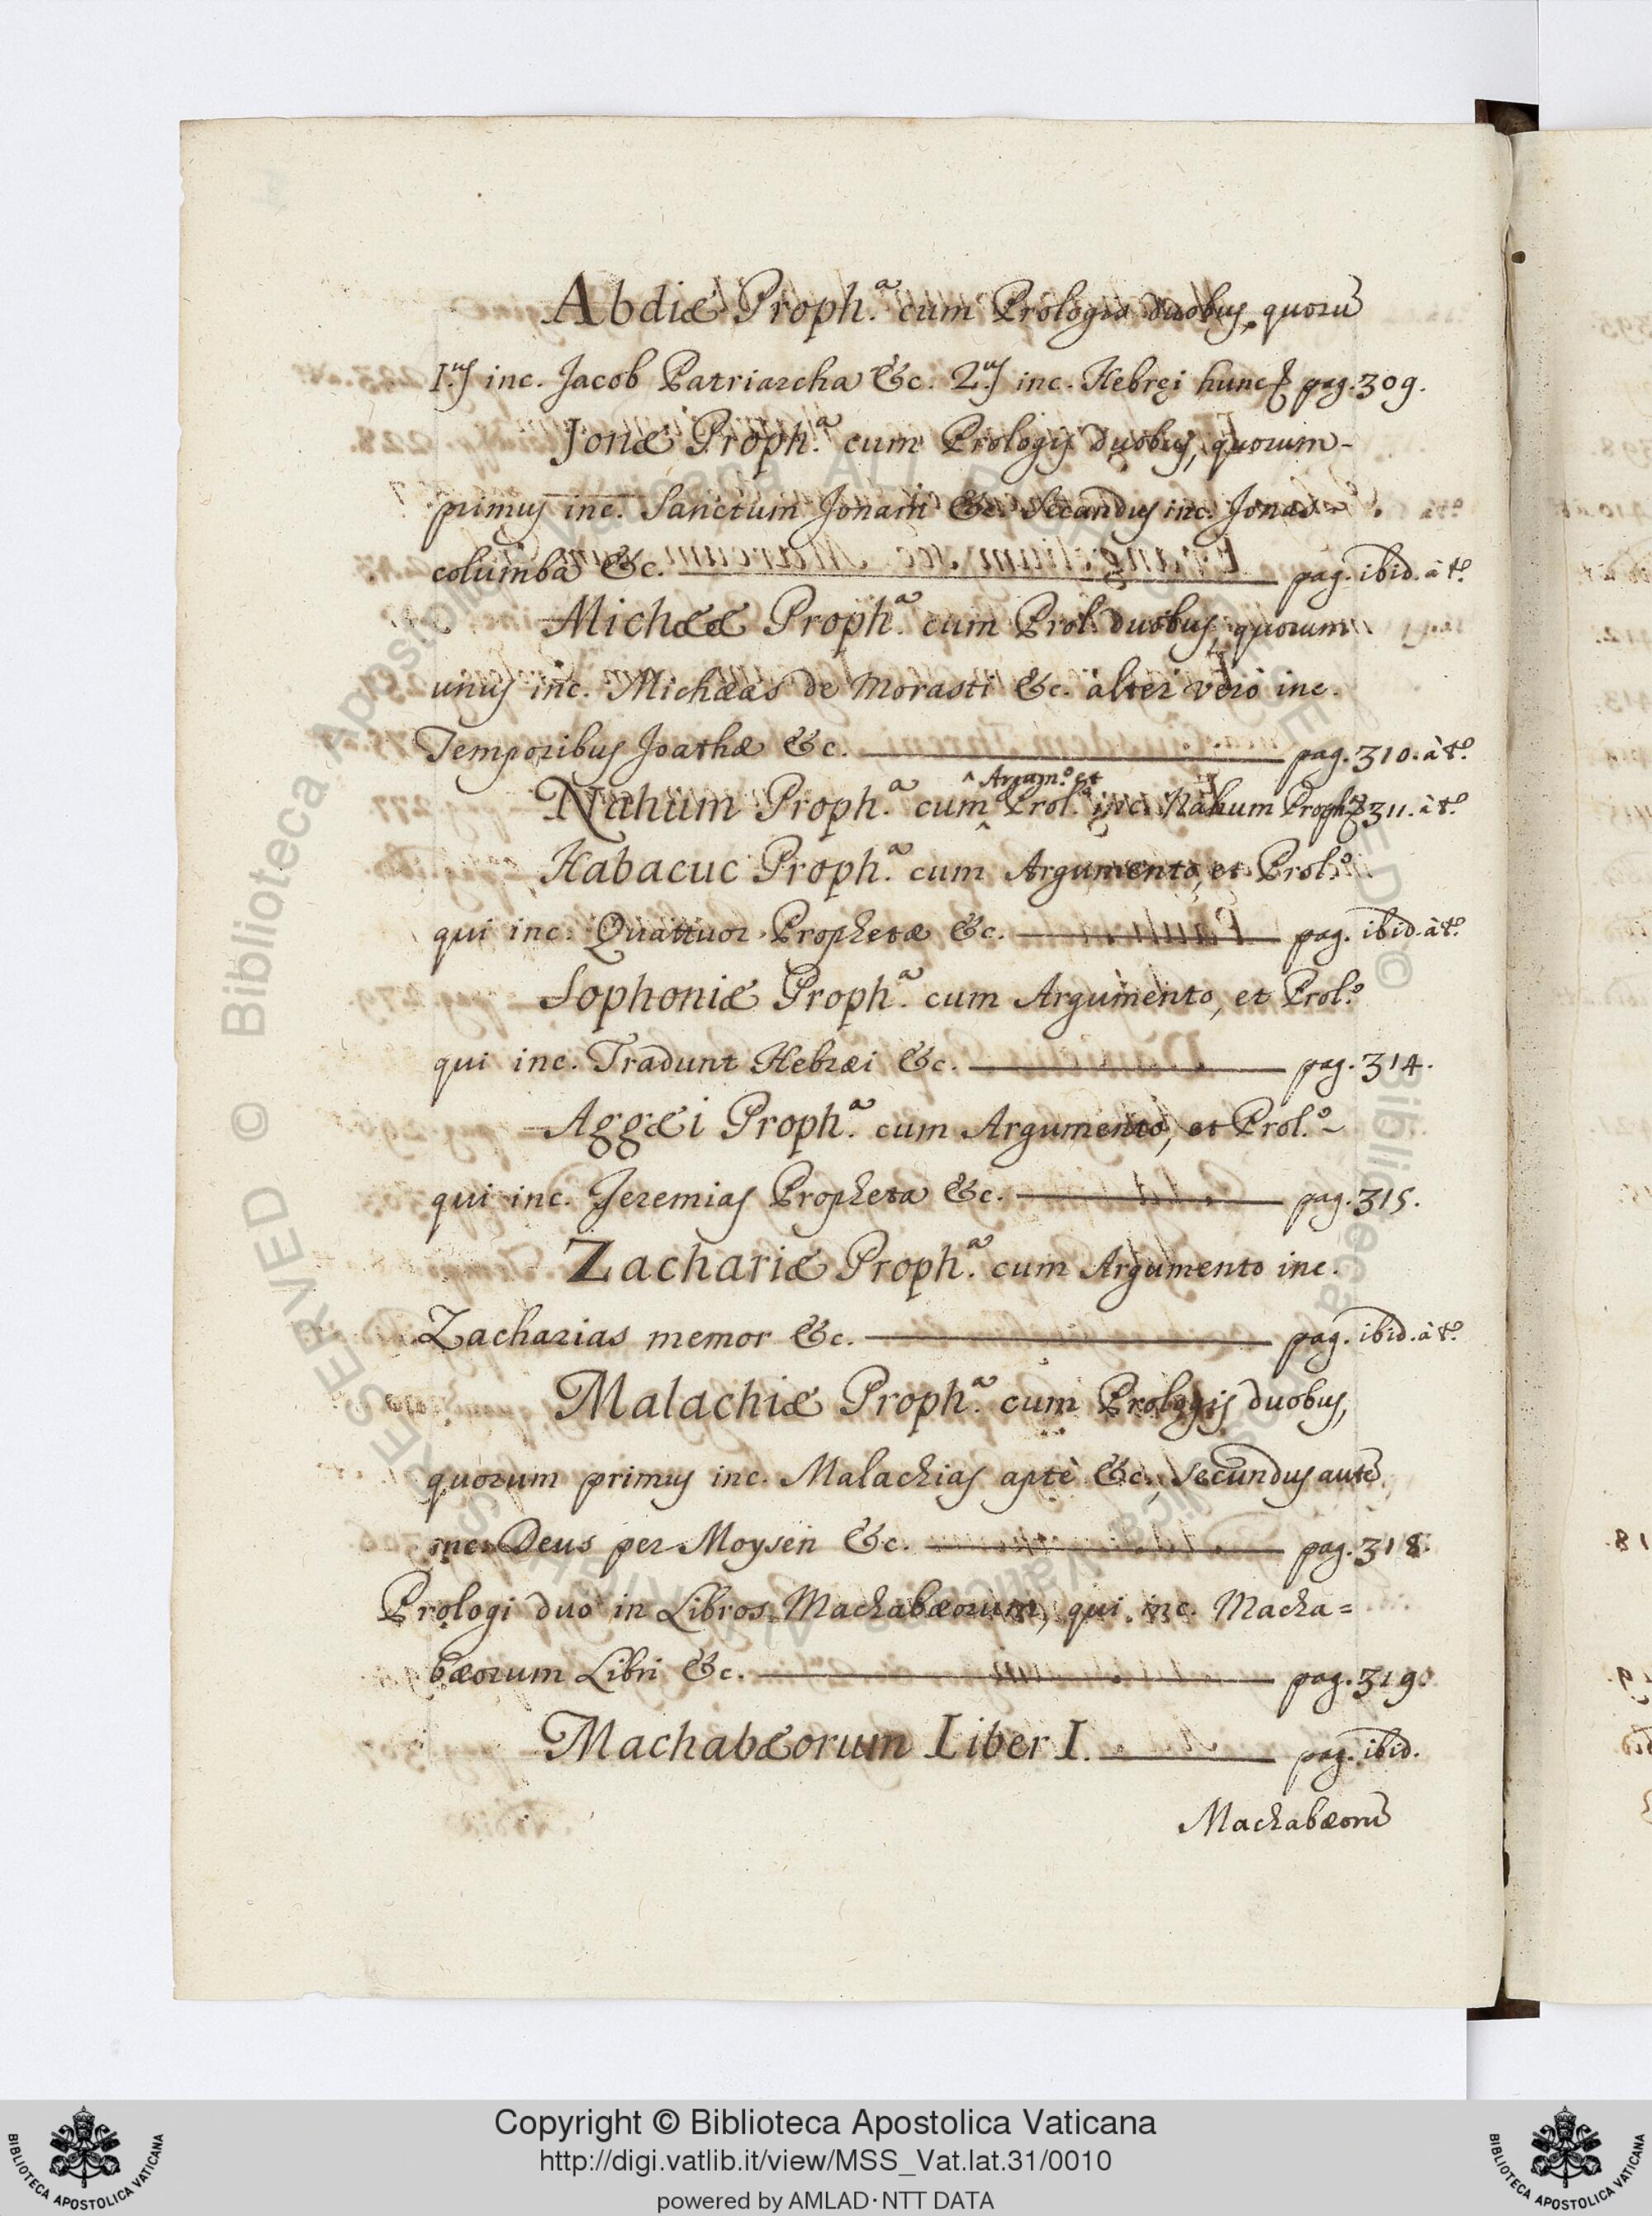 Abdiæ Proph.ª cum Prologis duobus, quorū
I.us inc. Jacob Patriarcha &c. 2.us inc. Hebręi hunc & pag. 309.
Jonæ Proph.ª cum Prologis duobus, quorum-
primus inc. Sanctum Jonam &c. Secundus inc. Jonas
columba &c. pag. ibid. à tº.
Michææ Proph.ª cum Prol. duobus, quorum
unus inc. Michæas de Morasti &c. alter verò inc.
Temporibus Joathæ &c. pag. 310. à tº.
^ Argum.º et
Nahum Proph.ª cum ^ Prol.º inc. Nahum Proph.ª & 311. à tº.
Habacuc Proph.ª cum Argumento, et Prol.º
qui inc. Quattuor Prophetæ &c. pag. ibid. à tº.
Sophoniæ Proph.ª cum Argumento, et Prol.º
qui inc. Tradunt Hebræi &c. pag. 314.
Aggæi Proph.ª cum Argumento, et Prol.º-
qui inc. Jeremias Propheta &c. pag. 315.
Zachariæ Proph.ª cum Argumento inc.
Zacharias memor &c. pag. ibid. à tº.
Malachiæ Proph.ª cum Prologis duobus,
quorum primus inc. Malachias aptè &c., secundus autē
inc. Deus per Moysen &c. pag. 318.
Prologi duo in Libros Machabæorum, qui inc. Macha=
bæorum Libri &c. pag. 319.
Machabæorum Liber I. pag. ibid.
Machabæorū
© Biblioteca Apostolica Vaticana ALL RIGHTS RESERVED
Copyright © Biblioteca Apostolica Vaticana
http://digi.vatlib.it/view/MSS_Vat.lat.31/0010
powered by AMLAD·NTT DATA
BIBLIOTECA APOSTOLICA VATICANA
BIBLIOTECA APOSTOLICA VATICANA